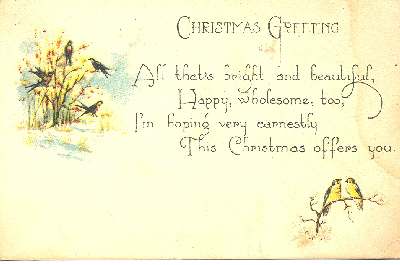 CHRISTMAS GREETING
All that's bright and beautiful,
Happy, wholesome, too,
I'm hoping very earnestly
This Christmas offers you.